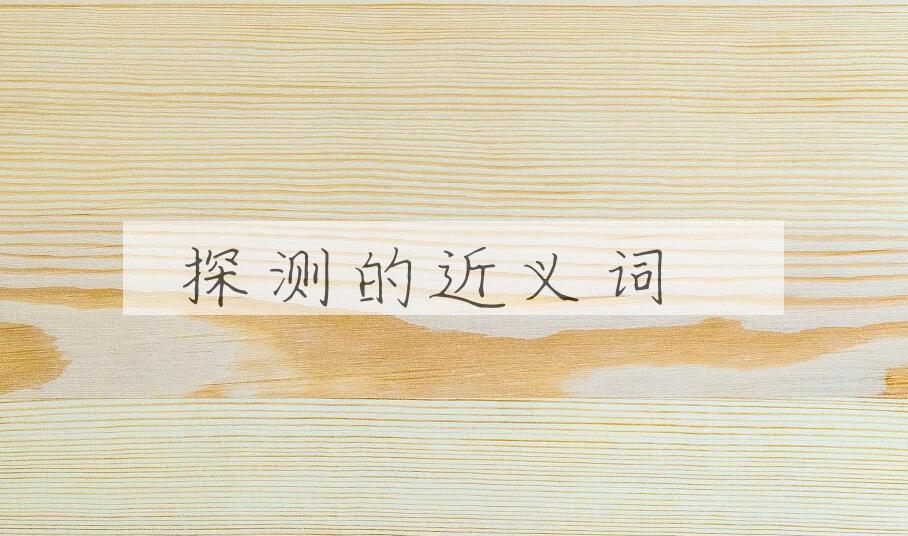 探测的近义词